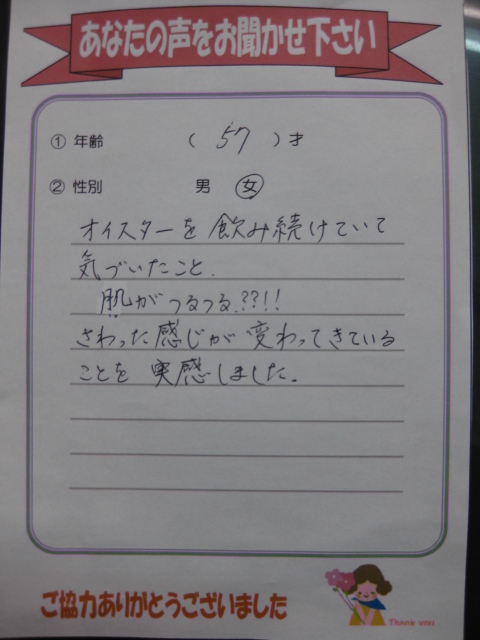 あなたの声をお聞かせ下さい
① 年齢 ( 57 ) 才
② 性別 男 女
オイスターを飲み続けていて
気づいたこと.
肌がつるつる.??!!
さわった感じが変わってきている
ことを実感しました。
ご協力ありがとうございました
Thank you